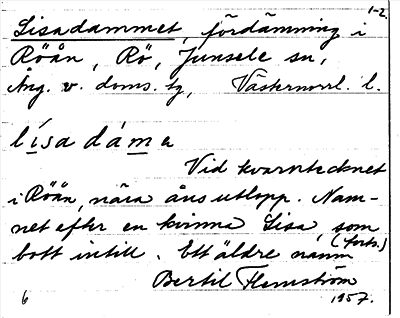 1-2.
Lisadammet, fördämning i
Röån, Rö, Junsele sn,
Ång. v. doms. tg, Västernorrl. l.
lísa dám a
Vid kvarnstecknet
i Röån, nära åns utlopp. Nam-
net efter en kvinna Lisa, som
bott intill. Ett äldre namn
(forts.)
Bertil Flemström
6 1957.